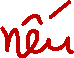 nếu